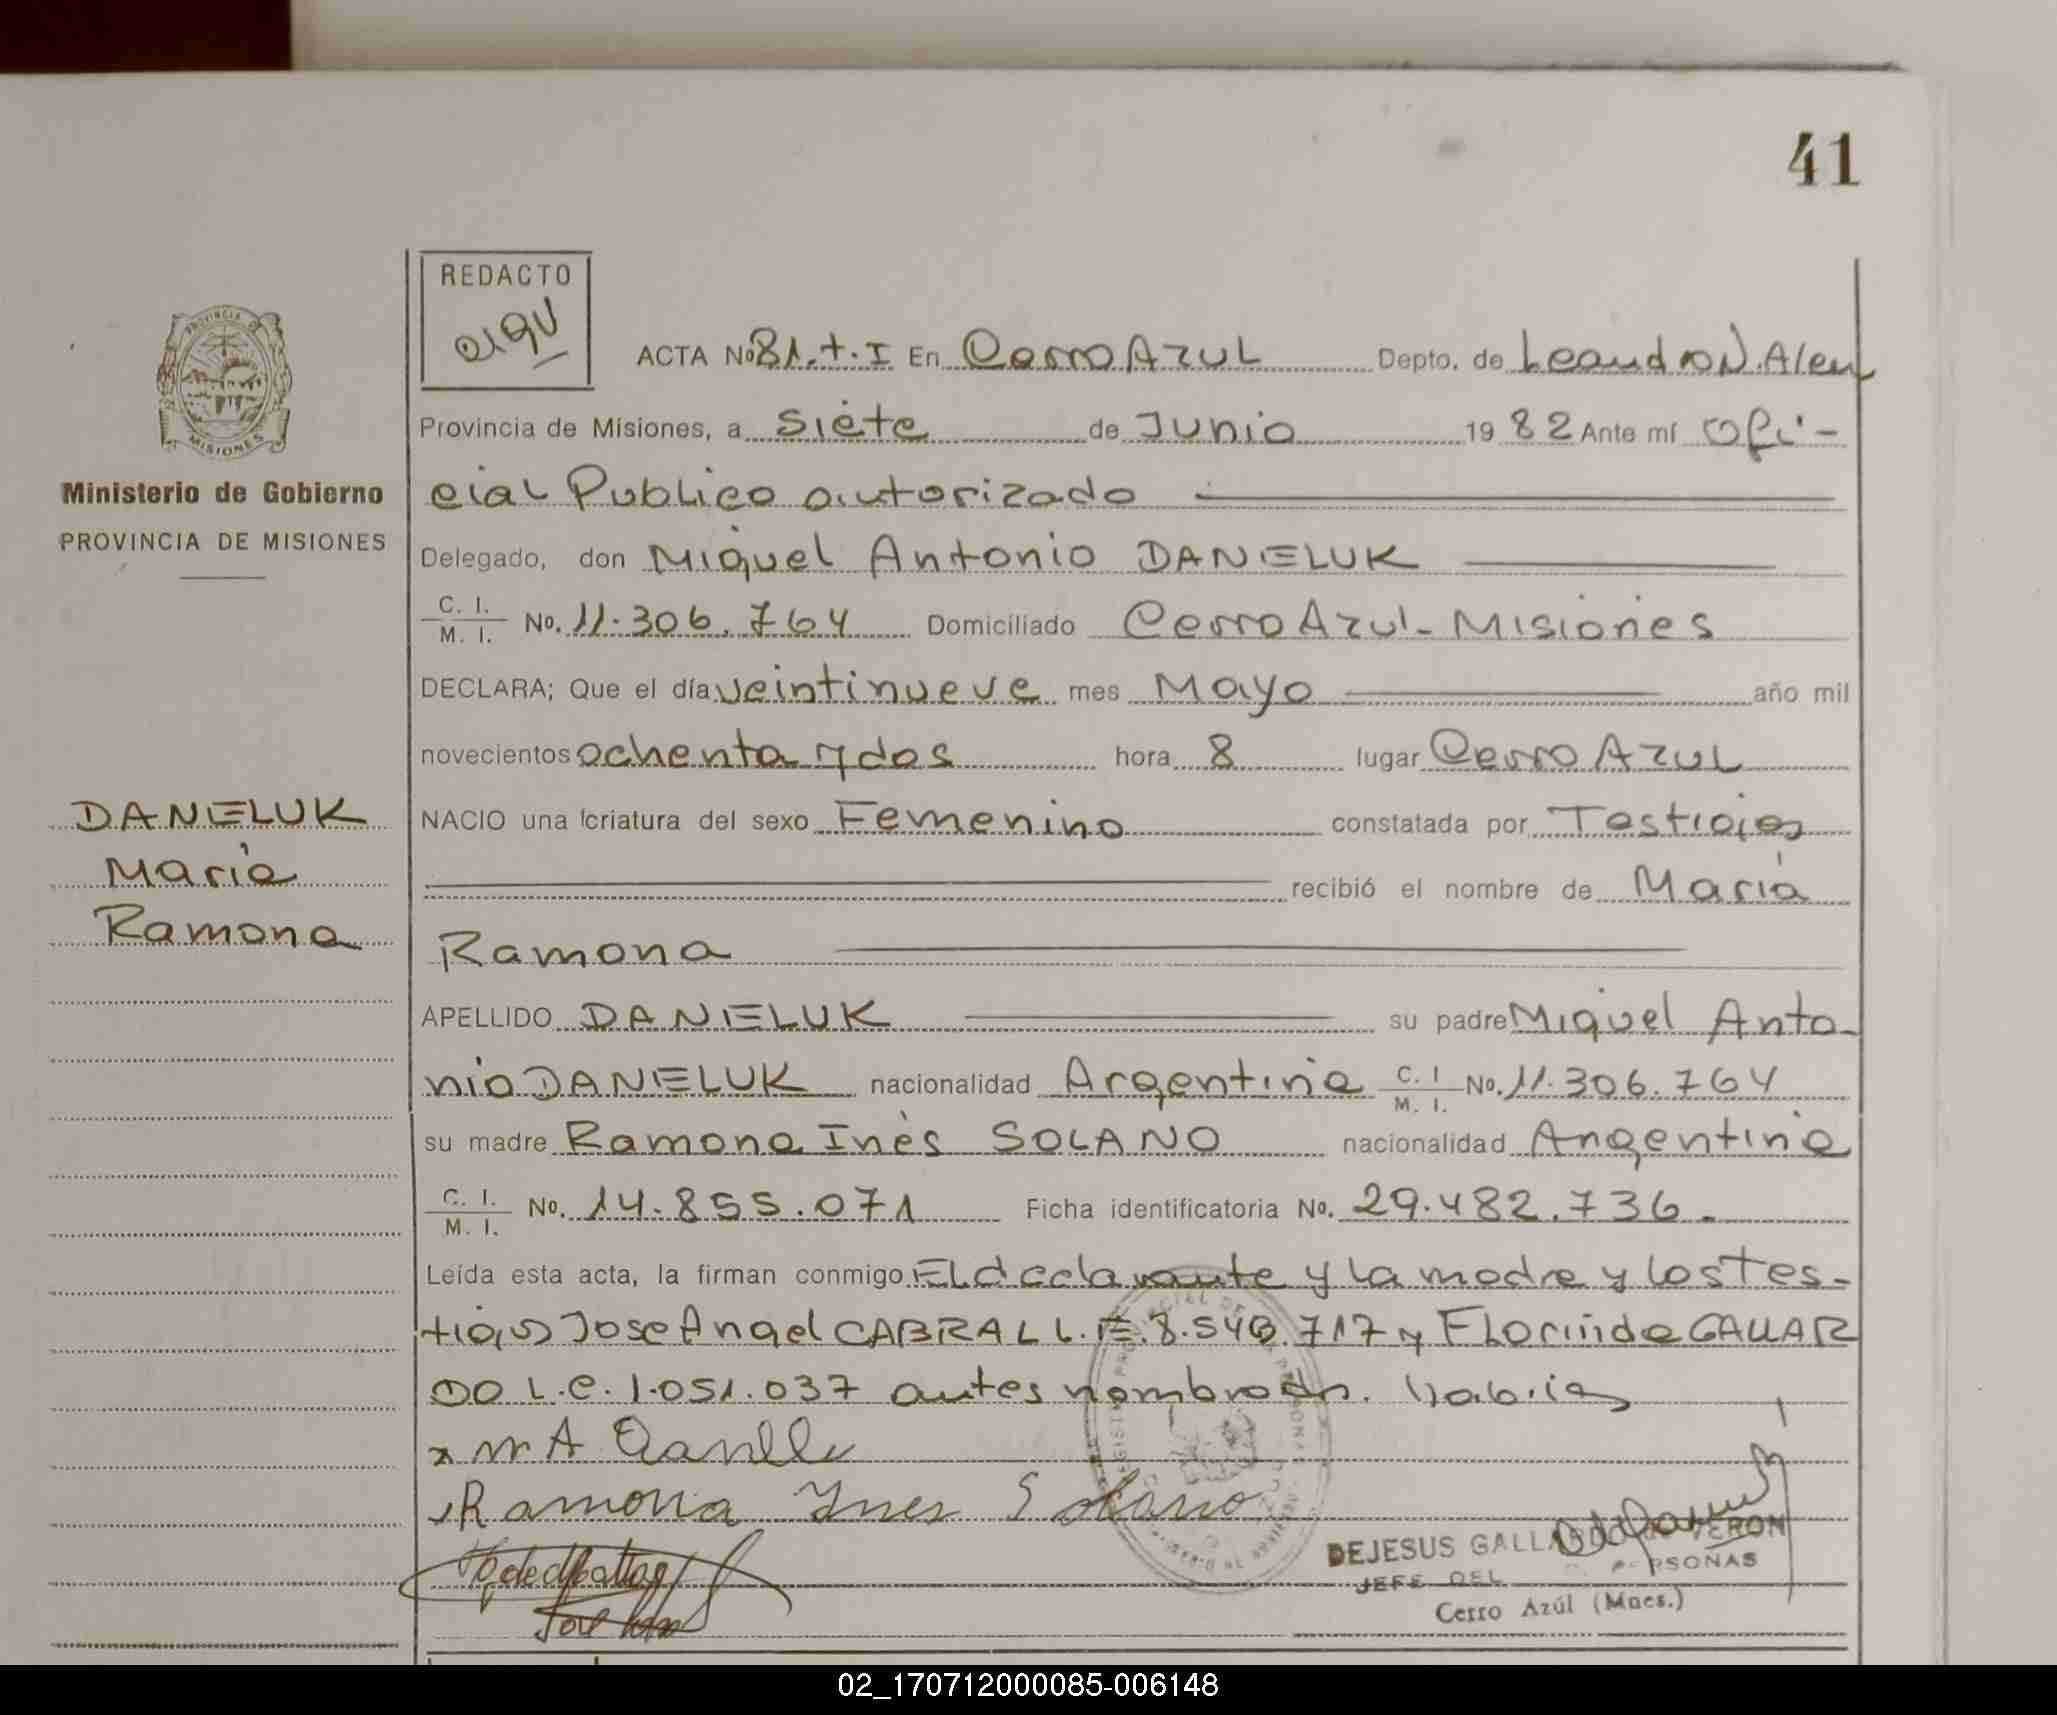 41
REDACTO
PROVINCIA DE
MISIONES
ACTA No 81. t. I En Cerro AZUL Depto. de Leandro N. Alem
Provincia de Misiones, a Siete de Junio 19 82 Ante mí Ofi-
cial Publico autorizado
Ministerio de Gobierno
PROVINCIA DE MISIONES
Delegado, don Miguel Antonio DANELUK
C. I.
M. I. No. 11.306.764 Domiciliado Cerro Azul - Misiones
DECLARA; Que el día veintinueve mes Mayo año mil
novecientos ochenta y dos hora 8 lugar Cerro AZUL
DANELUK
María
Ramona
NACIO una criatura del sexo Femenino constatada por Testigos
recibió el nombre de María
Ramona
APELLIDO DANELUK su padre Miguel Anto-
nio DANELUK nacionalidad Argentina C. I M. I. No. 11.306.764
su madre Ramona Inés SOLANO nacionalidad Argentina
C. I.
M. I. No. 14.855.071 Ficha identificatoria No. 29.482.736.
Leída esta acta, la firman conmigo El declarante y la madre y los tes-
tigos Jose Angel CABRAL L.E. 8.543.717 y Florinda GALLAR
DO L.C. 1.051.037 antes nombrado.
x M A
Ramona Ines Solano
DEJESUS GALLARDO VERON
JEFE DEL PERSONAS
Cerro Azúl (Mnes.)
02_170712000085-006148